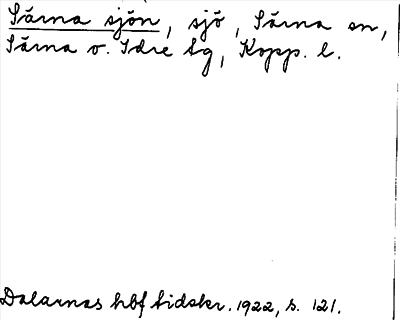 Särna sjön, sjö, Särna sn,
Särna o. Idre tg, Kopp. l.
Dalarnas hbf tidskr. 1922, s. 121.